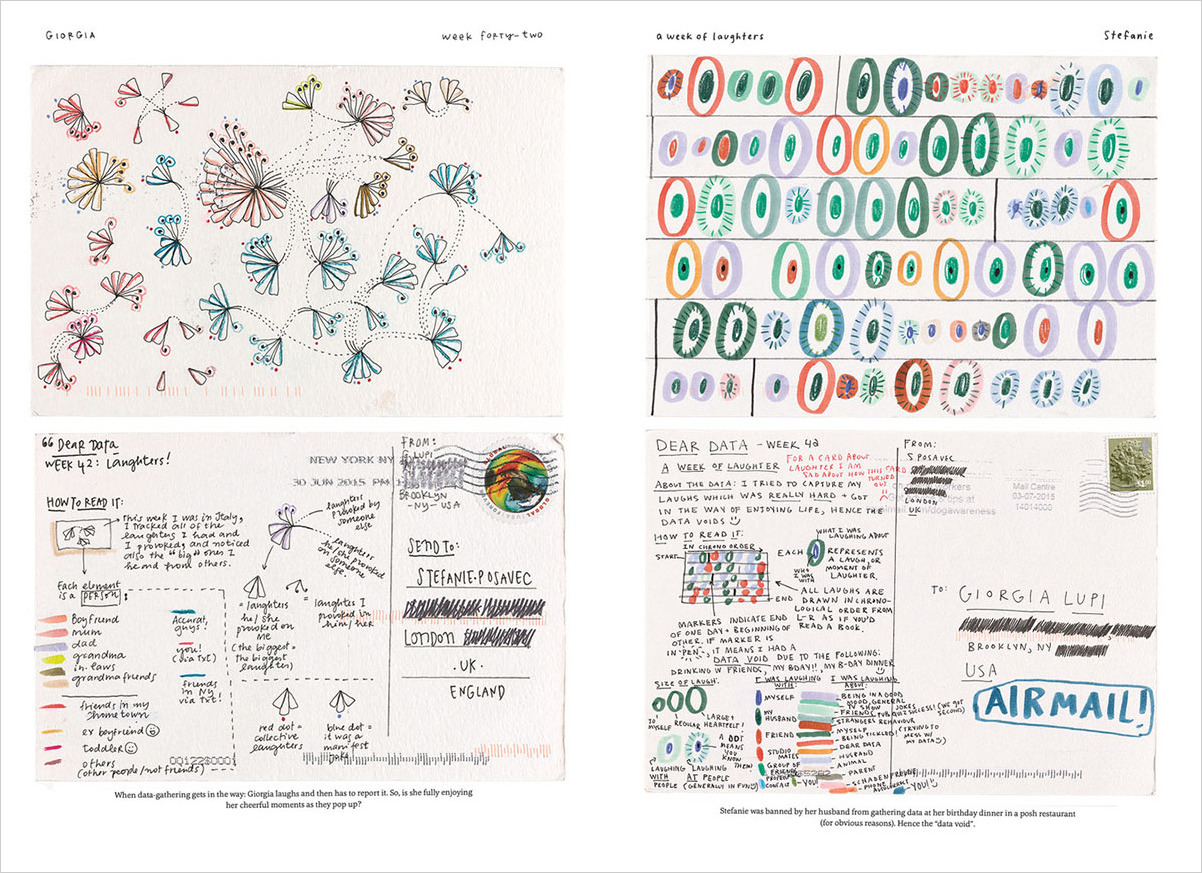 GIORGIA
week forty-two
a week of laughters
Stefanie
"Dear Data
WEEK 42: Laughters!
HOW TO READ IT:
This week I was in Italy,
I tracked all of the
laughters I had and
I provoked, and noticed
also the "big" ones I
heard from others.
Each element
is a PERSON:
boyfriend
mum
dad
grandma
in-laws
grandma friends
friends in my
hometown
ex boyfriend
toddler
others
(other people/not friends)
Accurat,
guys!
you!
(via txt)
friends
in NY
via txt!
laughters
provoked by
someone
else
laughters
he/she provoked
on someone
else.
= laughters
he/she
provoked
on me
(the biggest =
the biggest
laughter)
= laughters I
provoked in
him/her
red dot =
collective
laughters
blue dot =
it was a
manifest
joke
FROM:
G. LUPI
BROOKLYN
-NY- USA
NEW YORK NY
30 JUN 2015 PM
SEND TO:
STEFANIE·POSAVEC
London
·UK·
ENGLAND
When data-gathering gets in the way: Giorgia laughs and then has to report it. So, is she fully enjoying
her cheerful moments as they pop up?
DEAR DATA - WEEK 42
A WEEK OF LAUGHTER
FOR A CARD ABOUT
LAUGHTER I AM
SAD ABOUT HOW THIS CARD
TURNED
OUT
ABOUT THE DATA: I TRIED TO CAPTURE MY
LAUGHS WHICH WAS REALLY HARD + GOT
IN THE WAY OF ENJOYING LIFE, HENCE THE
DATA VOIDS
HOW TO READ IT:
IN CHRONO ORDER
START
END
EACH
WHAT I WAS
LAUGHING ABOUT
WHO
I WAS
WITH
REPRESENTS
A LAUGH, OR
MOMENT OF
LAUGHTER.
ALL LAUGHS ARE
DRAWN IN CHRONO-
LOGICAL ORDER FROM
L-R AS IF YOU'D
READ A BOOK.
MARKERS INDICATE END
OF ONE DAY + BEGINNING OF
OTHER. IF MARKER IS
IN "PEN", IT MEANS I HAD A
DATA VOID DUE TO THE FOLLOWING:
DRINKING W FRIENDS, MY BDAY!!, MY B-DAY DINNER
SIZE OF LAUGH:
TO
MYSELF
REGULAR
LARGE +
HEARTFELT!
LAUGHING
WITH
PEOPLE
LAUGHING
AT PEOPLE
(GENERALLY IN FUN)
A DOT
MEANS
YOU
KNOW
THEM
I WAS LAUGHING
WITH:
MYSELF
MY
HUSBAND
FRIEND
STUDIO
MATES
GROUP OF
FRIENDS
YOU!
I WAS LAUGHING
ABOUT:
BEING IN A GOOD
MOOD, GENERAL
TV SHOW JOKES
FRIENDS, PUB QUIZ SUCCESS! (WE GOT SECOND)
STRANGERS BEHAVIOUR
MYSELF
BEING TICKLED!
(TRYING TO
MESS W/
MY DATA)
DEAR DATA
HUSBAND
ANIMAL
PARENT
SCHADENFREUDE
YOU!
FROM:
S POSAVEC
LONDON
UK
Mail Centre
03-07-2015
TO:
GIORGIA LUPI
BROOKLYN, NY
USA
AIRMAIL!
Stefanie was banned by her husband from gathering data at her birthday dinner in a posh restaurant
(for obvious reasons). Hence the "data void".